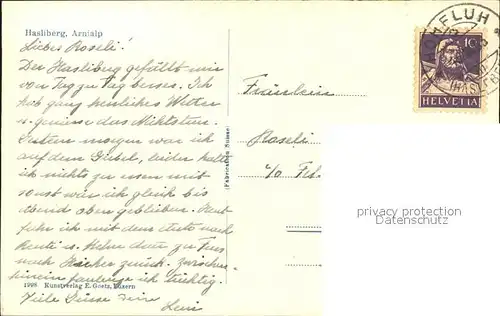 Hasliberg, Arnialp
Liebes Roseli!
Der Hasliberg gefällt mir
von Tag zu Tag besser. Ich
hab ganz herrliches Wetter
u. geniesse das Nichtstun.
Gestern morgen war ich
auf dem Gibel, leider hatte
ich nichts zu essen mit
sonst wär ich gleich bis
abend oben geblieben. Heut
fuhr ich mit dem Auto nach
Reuti u. dann zu Fuss
nach zurück. Zwischen
hinein faulenze ich tüchtig.
Viele Grüsse
1998 Kunstverlag E. Goetz, Luzern
(Fabrication Suisse)
Fräulein
Roseli
c/o Fel
HOHFLUH
10
HELVETIA
privacy protection
watermark